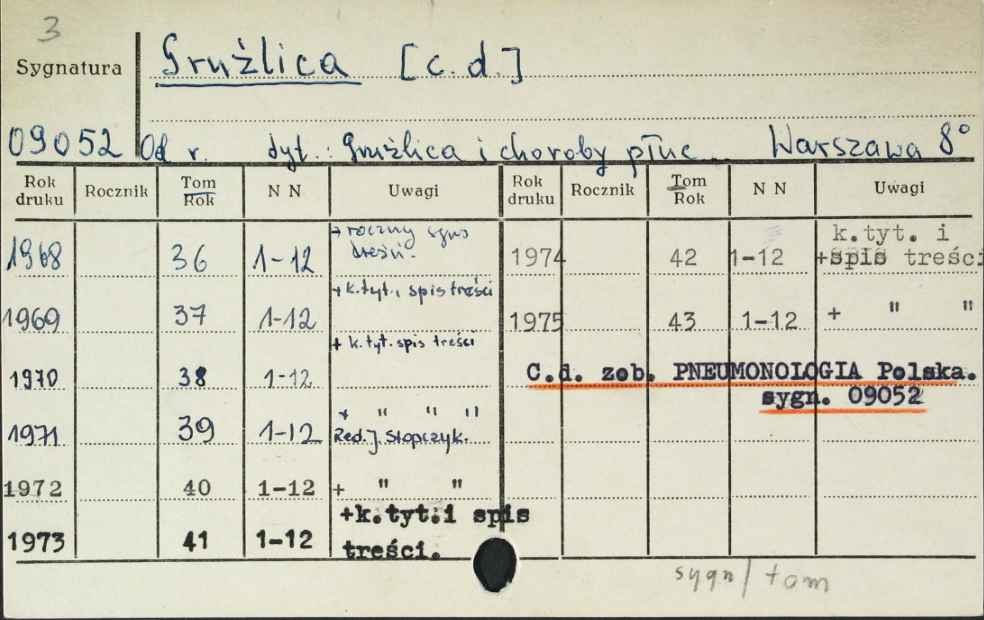 3
Sygnatura Gruźlica [c.d.]
09052 Od r. tyt.: Gruźlica i choroby płuc Warszawa 8°
Rok druku Rocznik Tom Rok N N Uwagi Rok druku Rocznik Tom Rok N N Uwagi
1968 36 1-12 + roczny spis treści. 1974 42 1-12 k.tyt. i +spis treści
1969 37 1-12 + k.tyt. i spis treści 1975 43 1-12 + " "
1970 38 1-12 + k.tyt. spis treści
C.d. zob. PNEUMONOLOGIA Polska.
sygn. 09052
1971 39 1-12 + " " " Red. J. Stopczyk.
1972 40 1-12 + " "
1973 41 1-12 +k.tyt.i spis treści.
sygn/tom